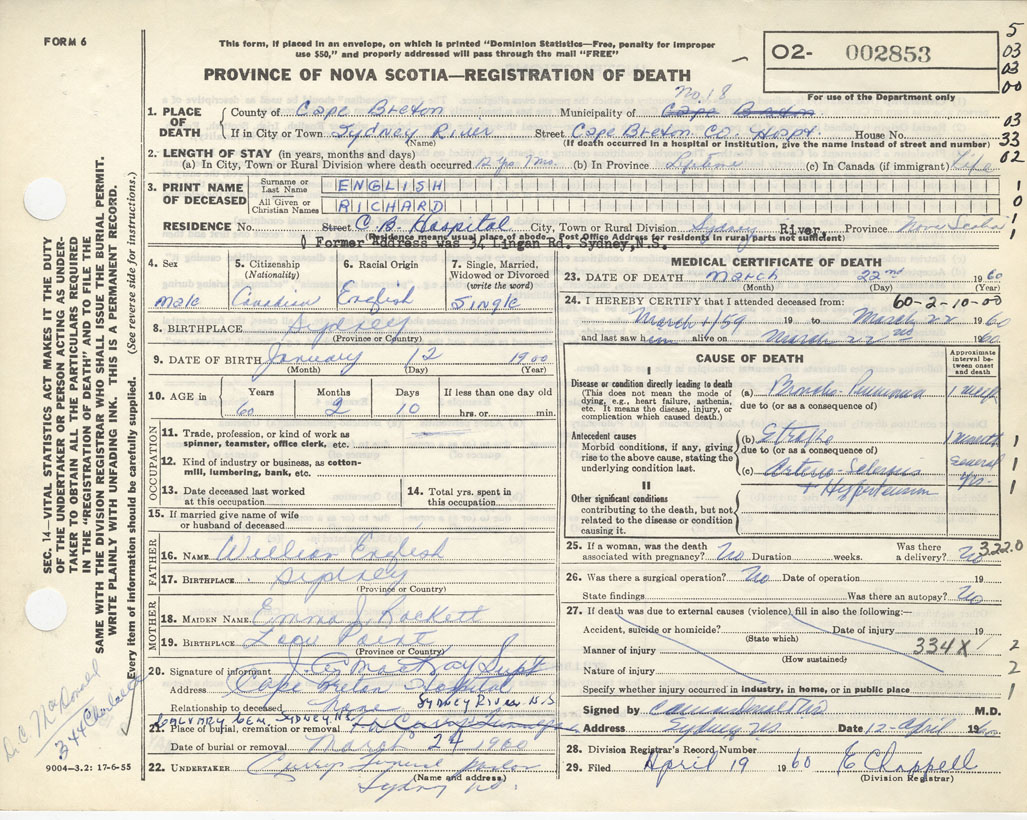 FORM 6
This form, if placed in an envelope, on which is printed "Dominion Statistics—Free, penalty for improper
use $50," and properly addressed will pass through the mail "FREE"
PROVINCE OF NOVA SCOTIA—REGISTRATION OF DEATH
O2- 002853
For use of the Department only
5
03
03
00
03
33
02
1
0
1
1
No. 18
1. PLACE OF DEATH
County of Cape Breton Municipality of Cape Breton
If in City or Town Sydney River Street Cape Breton Co. Hospt. House No.
(Name) (If death occurred in a hospital or institution, give the name instead of street and number)
2. LENGTH OF STAY (in years, months and days)
(a) In City, Town or Rural Division where death occurred (b) In Province Lifetime (c) In Canada (if immigrant) Life
3. PRINT NAME OF DECEASED
Surname or Last Name ENGLISH
All Given or Christian Names RICHARD
RESIDENCE No. Street C.B. Hospital City, Town or Rural Division Sydney River, Province Nova Scotia
(Residence means usual place of abode. Post Office Address for residents in rural parts not sufficient)
Former Address was 54 Lingan Rd. Sydney, N.S.
4. Sex
male
5. Citizenship
(Nationality)
Canadian
6. Racial Origin
English
7. Single, Married, Widowed or Divorced
(write the word)
Single
8. BIRTHPLACE Sydney
(Province or Country)
9. DATE OF BIRTH January 12 1900
(Month) (Day) (Year)
10. AGE in
Years Months Days If less than one day
60 2 10 hrs. or min.
OCCUPATION
11. Trade, profession, or kind of work as
spinner, teamster, office clerk, etc.
12. Kind of industry or business, as cotton-
mill, lumbering, bank, etc.
13. Date deceased last worked
at this occupation
14. Total yrs. spent in
this occupation
15. If married give name of wife
or husband of deceased
FATHER
16. NAME William English
17. BIRTHPLACE Sydney
(Province or Country)
MOTHER
18. MAIDEN NAME Emma J. Rockett
19. BIRTHPLACE Low Point
(Province or Country)
20. Signature of informant J. C. MacKay Supt
Address Cape Breton Hospital
Sydney River N.S
Relationship to deceased None
CALVARY CEM, SYDNEY, NS
21. Place of burial, cremation or removal
Date of burial or removal March 24 1960
22. UNDERTAKER Currys Funeral Parlor
(Name and address)
Sydney NS.
MEDICAL CERTIFICATE OF DEATH
23. DATE OF DEATH March 22nd 1960
(Month) (Day) (Year)
24. I HEREBY CERTIFY that I attended deceased from: 60-2-10-00
March 1/59 19 to March 22 1960
and last saw him alive on March 22nd 1960.
CAUSE OF DEATH
Approximate interval between onset and death
I
Disease or condition directly leading to death
(This does not mean the mode of
dying, e.g., heart failure, asthenia,
etc. It means the disease, injury, or
complication which caused death.)
(a) Broncho Pneumonia 1 week
due to (or as a consequence of)
Antecedent causes
Morbid conditions, if any, giving
rise to the above cause, stating the
underlying condition last.
(b) Stroke 1 month 1
due to (or as a consequence of)
(c) Arterio Sclerosis several yrs. 1
+ Hypertension 1
II
Other significant conditions
contributing to the death, but not
related to the disease or condition
causing it.
25. If a woman, was the death
associated with pregnancy? No Duration weeks. Was there
a delivery? No
322.0
26. Was there a surgical operation? No Date of operation 19
State findings Was there an autopsy? No
27. If death was due to external causes (violence) fill in also the following:—
Accident, suicide or homicide? Date of injury 19
(State which)
Manner of injury 334X 2
(How sustained)
Nature of injury 2
Specify whether injury occurred in industry, in home, or in public place 1
Signed by M.D.
Address Sydney NS Date 12 - April 1960
28. Division Registrar's Record Number
29. Filed April 19 1960 E Chappell
(Division Registrar)
SEC. 14—VITAL STATISTICS ACT MAKES IT THE DUTY
OF THE UNDERTAKER OR PERSON ACTING AS UNDER-
TAKER TO OBTAIN ALL THE PARTICULARS REQUIRED
IN THE "REGISTRATION OF DEATH" AND TO FILE THE
SAME WITH THE DIVISION REGISTRAR WHO SHALL ISSUE THE BURIAL PERMIT.
WRITE PLAINLY WITH UNFADING INK. THIS IS A PERMANENT RECORD.
Every item of information should be carefully supplied. (See reverse side for instructions.)
D. C. MacDonald
344 Charlotte
9004—3.2: 17-6-55